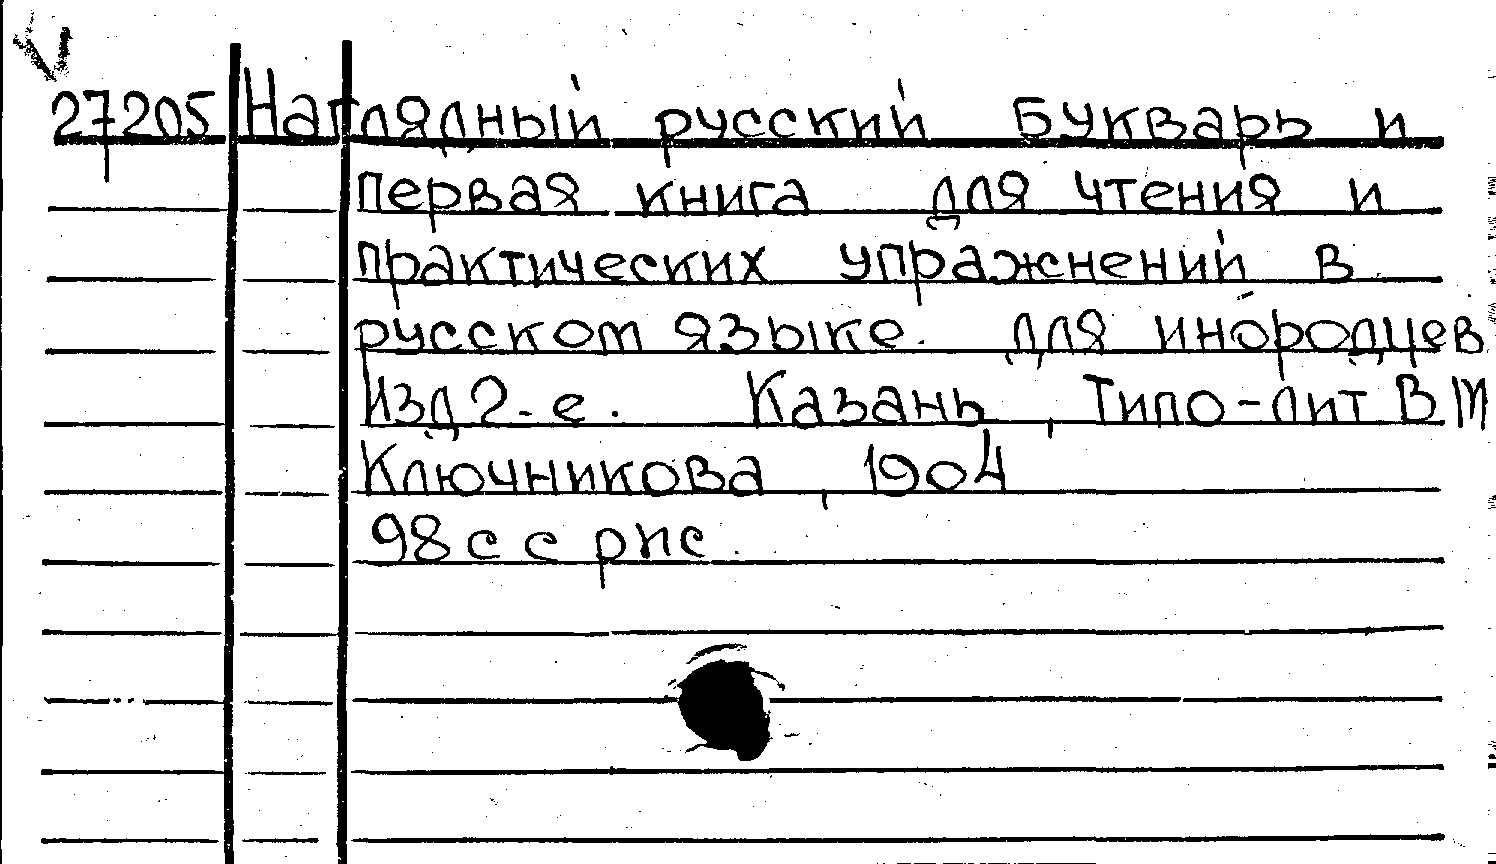 27205 Наглядный русский букварь и
первая книга для чтения и
практических упражнений в
русском языке. для инородцев
Изд 2-е. Казань, Типо-лит В.М
Ключникова, 1904
98 с с рис.